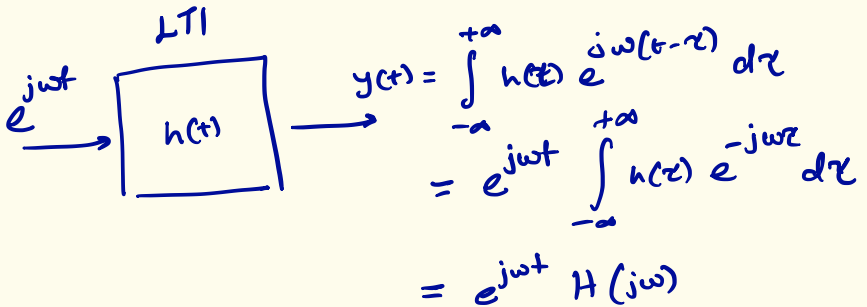 LTI
e^{jωt} → h(t) → y(t) = ∫_{-∞}^{+∞} h(τ) e^{jω(t-τ)} dτ
= e^{jωt} ∫_{-∞}^{+∞} h(τ) e^{-jωτ} dτ
= e^{jωt} H(jω)